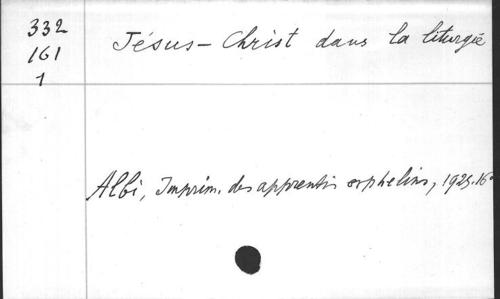 332
161
1
Jésus-Christ dans la liturgie
Albi, Imprim. des apprentis orphelins, 1925. 16°